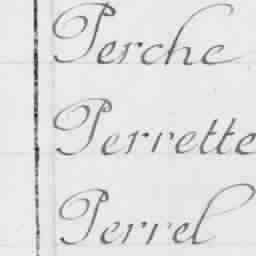 Perche
Perrette
Perrel